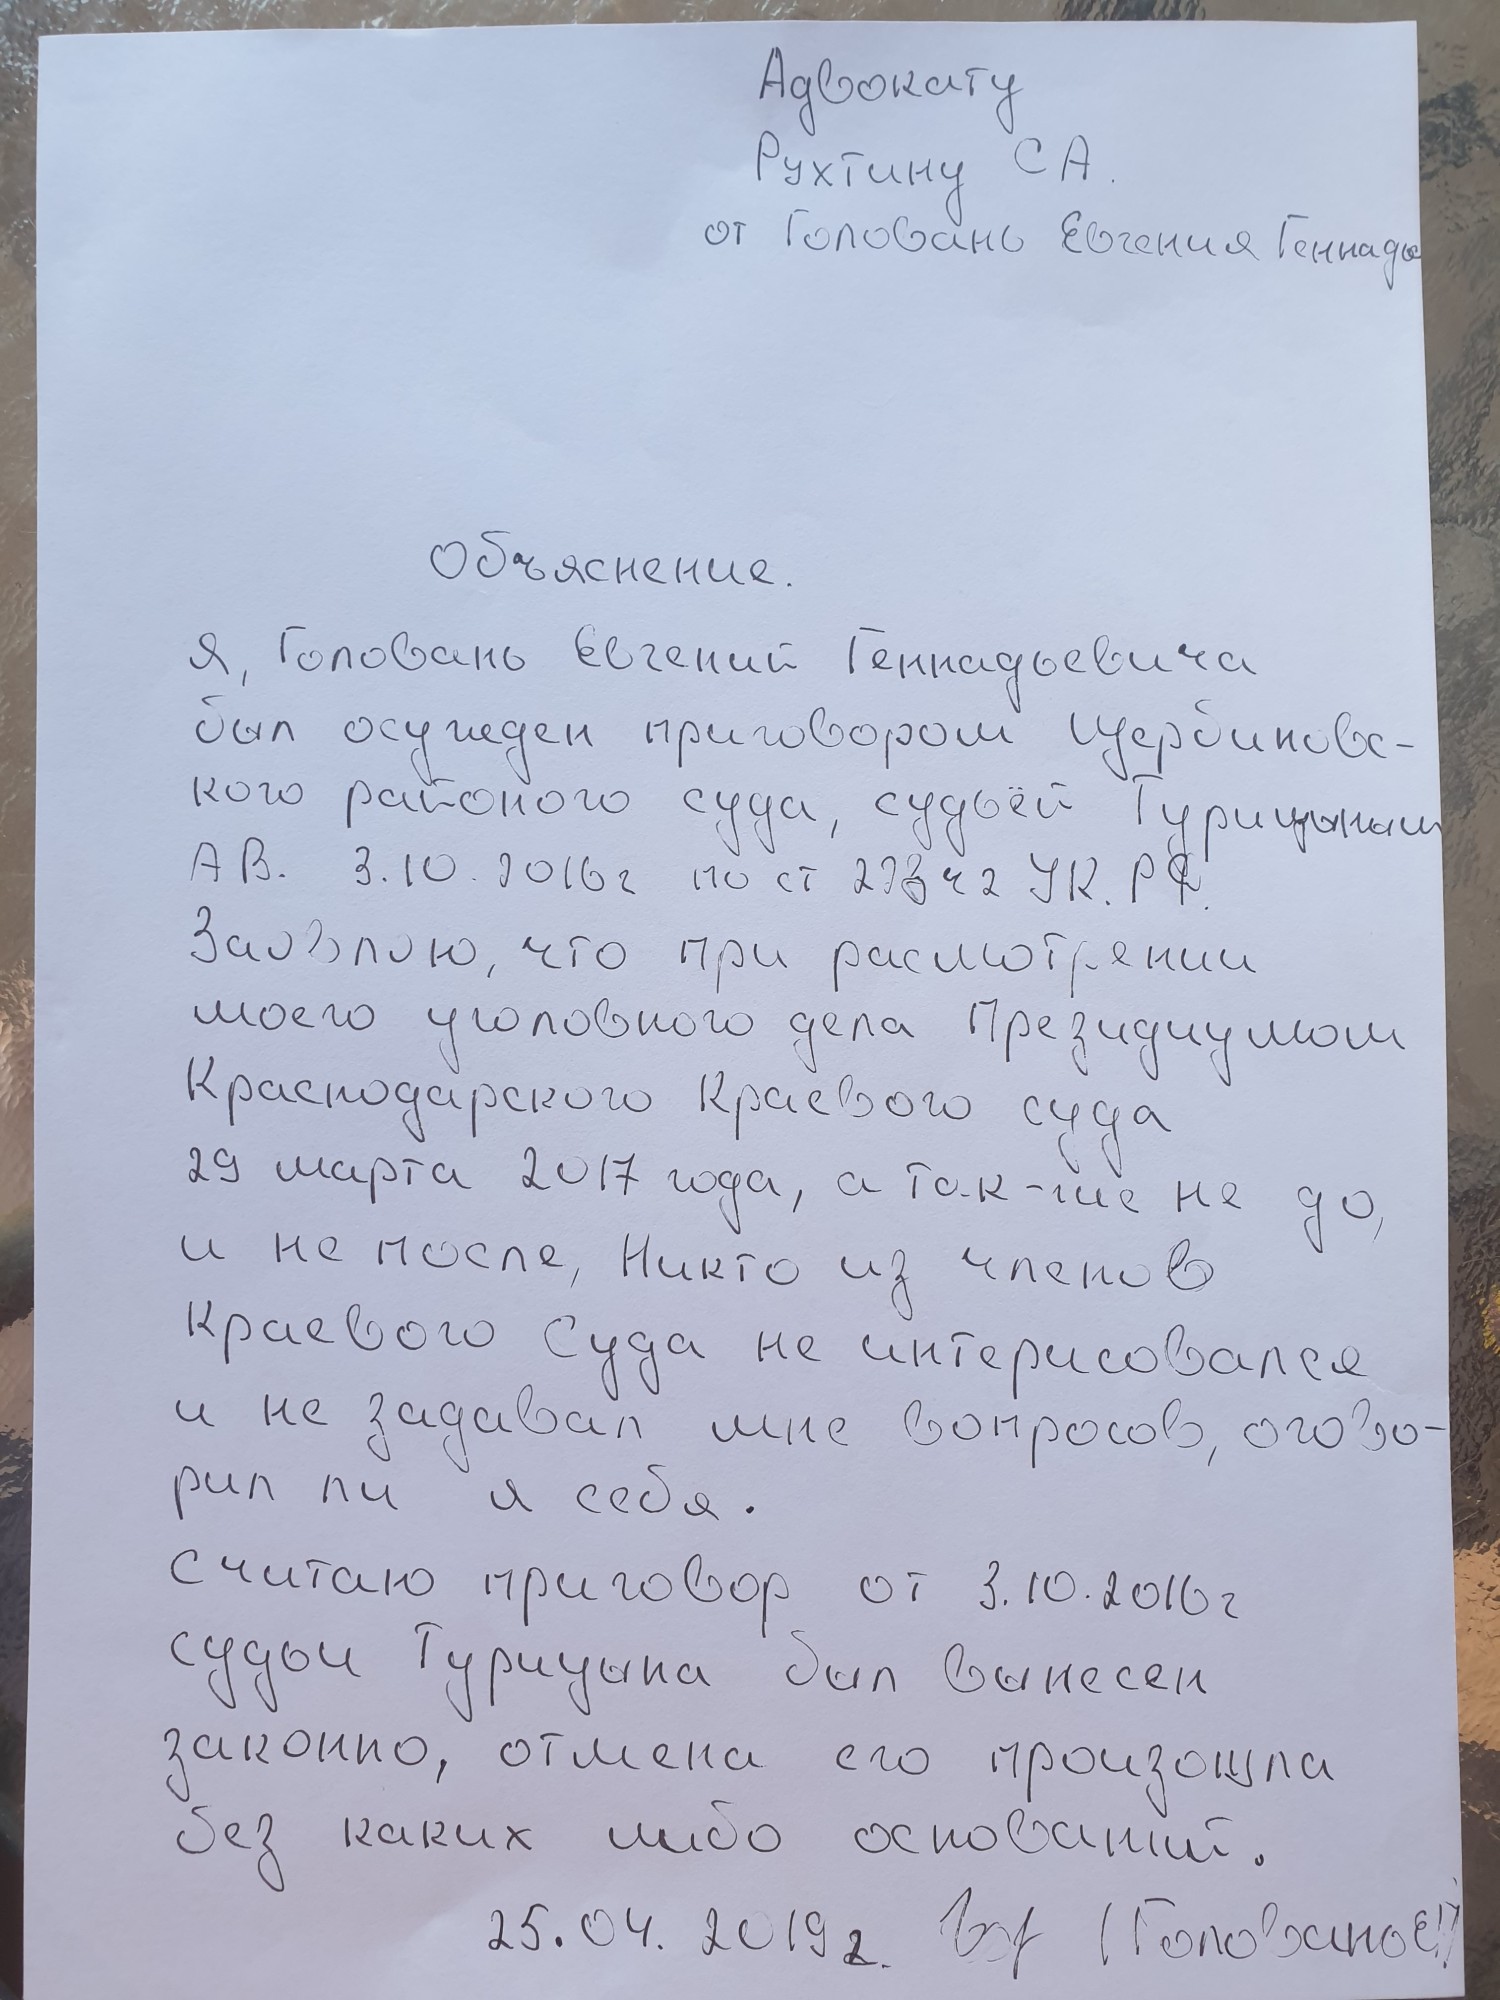 Адвокату
Рухтину С А.
от Головань Евгения Геннадье
Объяснение.
Я, Головань Евгений Геннадьевича
был осужден приговором Щербиновс-
кого районого суда, судьёй Турицыным
А В. 3.10.2016г по ст ч 2 УК. РФ.
Заявляю, что при расмотрении
моего уголовного дела Президиумом
Краснодарского Краевого суда
29 марта 2017 года, а так-же не до,
и не после, Никто из членов
Краевого Суда не интерисовался
и не задавал мне вопросов, огово-
рил ли я себя.
Считаю приговор от 3.10.2016г
судьи Турицына был вынесен
законно, отмена его произошла
без каких либо оснований.
25.04.2019г.